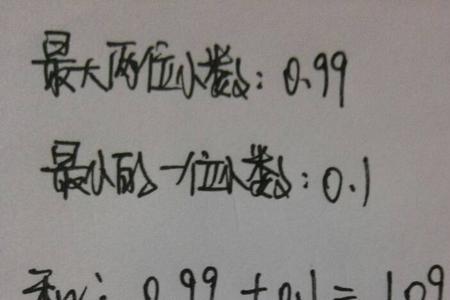 最大两位小数：0.99
最小的一位小数：0.1
和：0.99+0.1=1.09